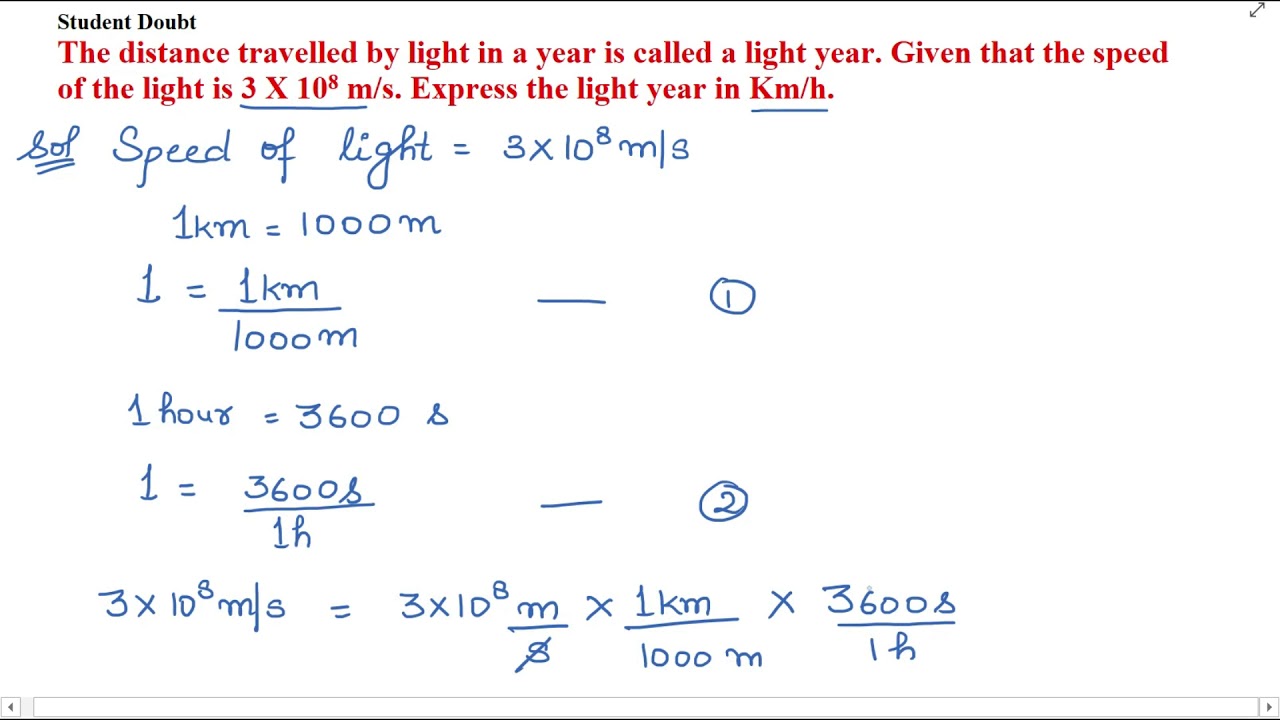 Student Doubt
The distance travelled by light in a year is called a light year. Given that the speed
of the light is 3 X 10⁸ m/s. Express the light year in Km/h.
Sol Speed of light = 3×10⁸ m/s
1km = 1000 m
1 = 1km / 1000 m — ①
1 hour = 3600 s
1 = 3600s / 1h — ②
3×10⁸ m/s = 3×10⁸ m/s × 1km/1000 m × 3600s/1h